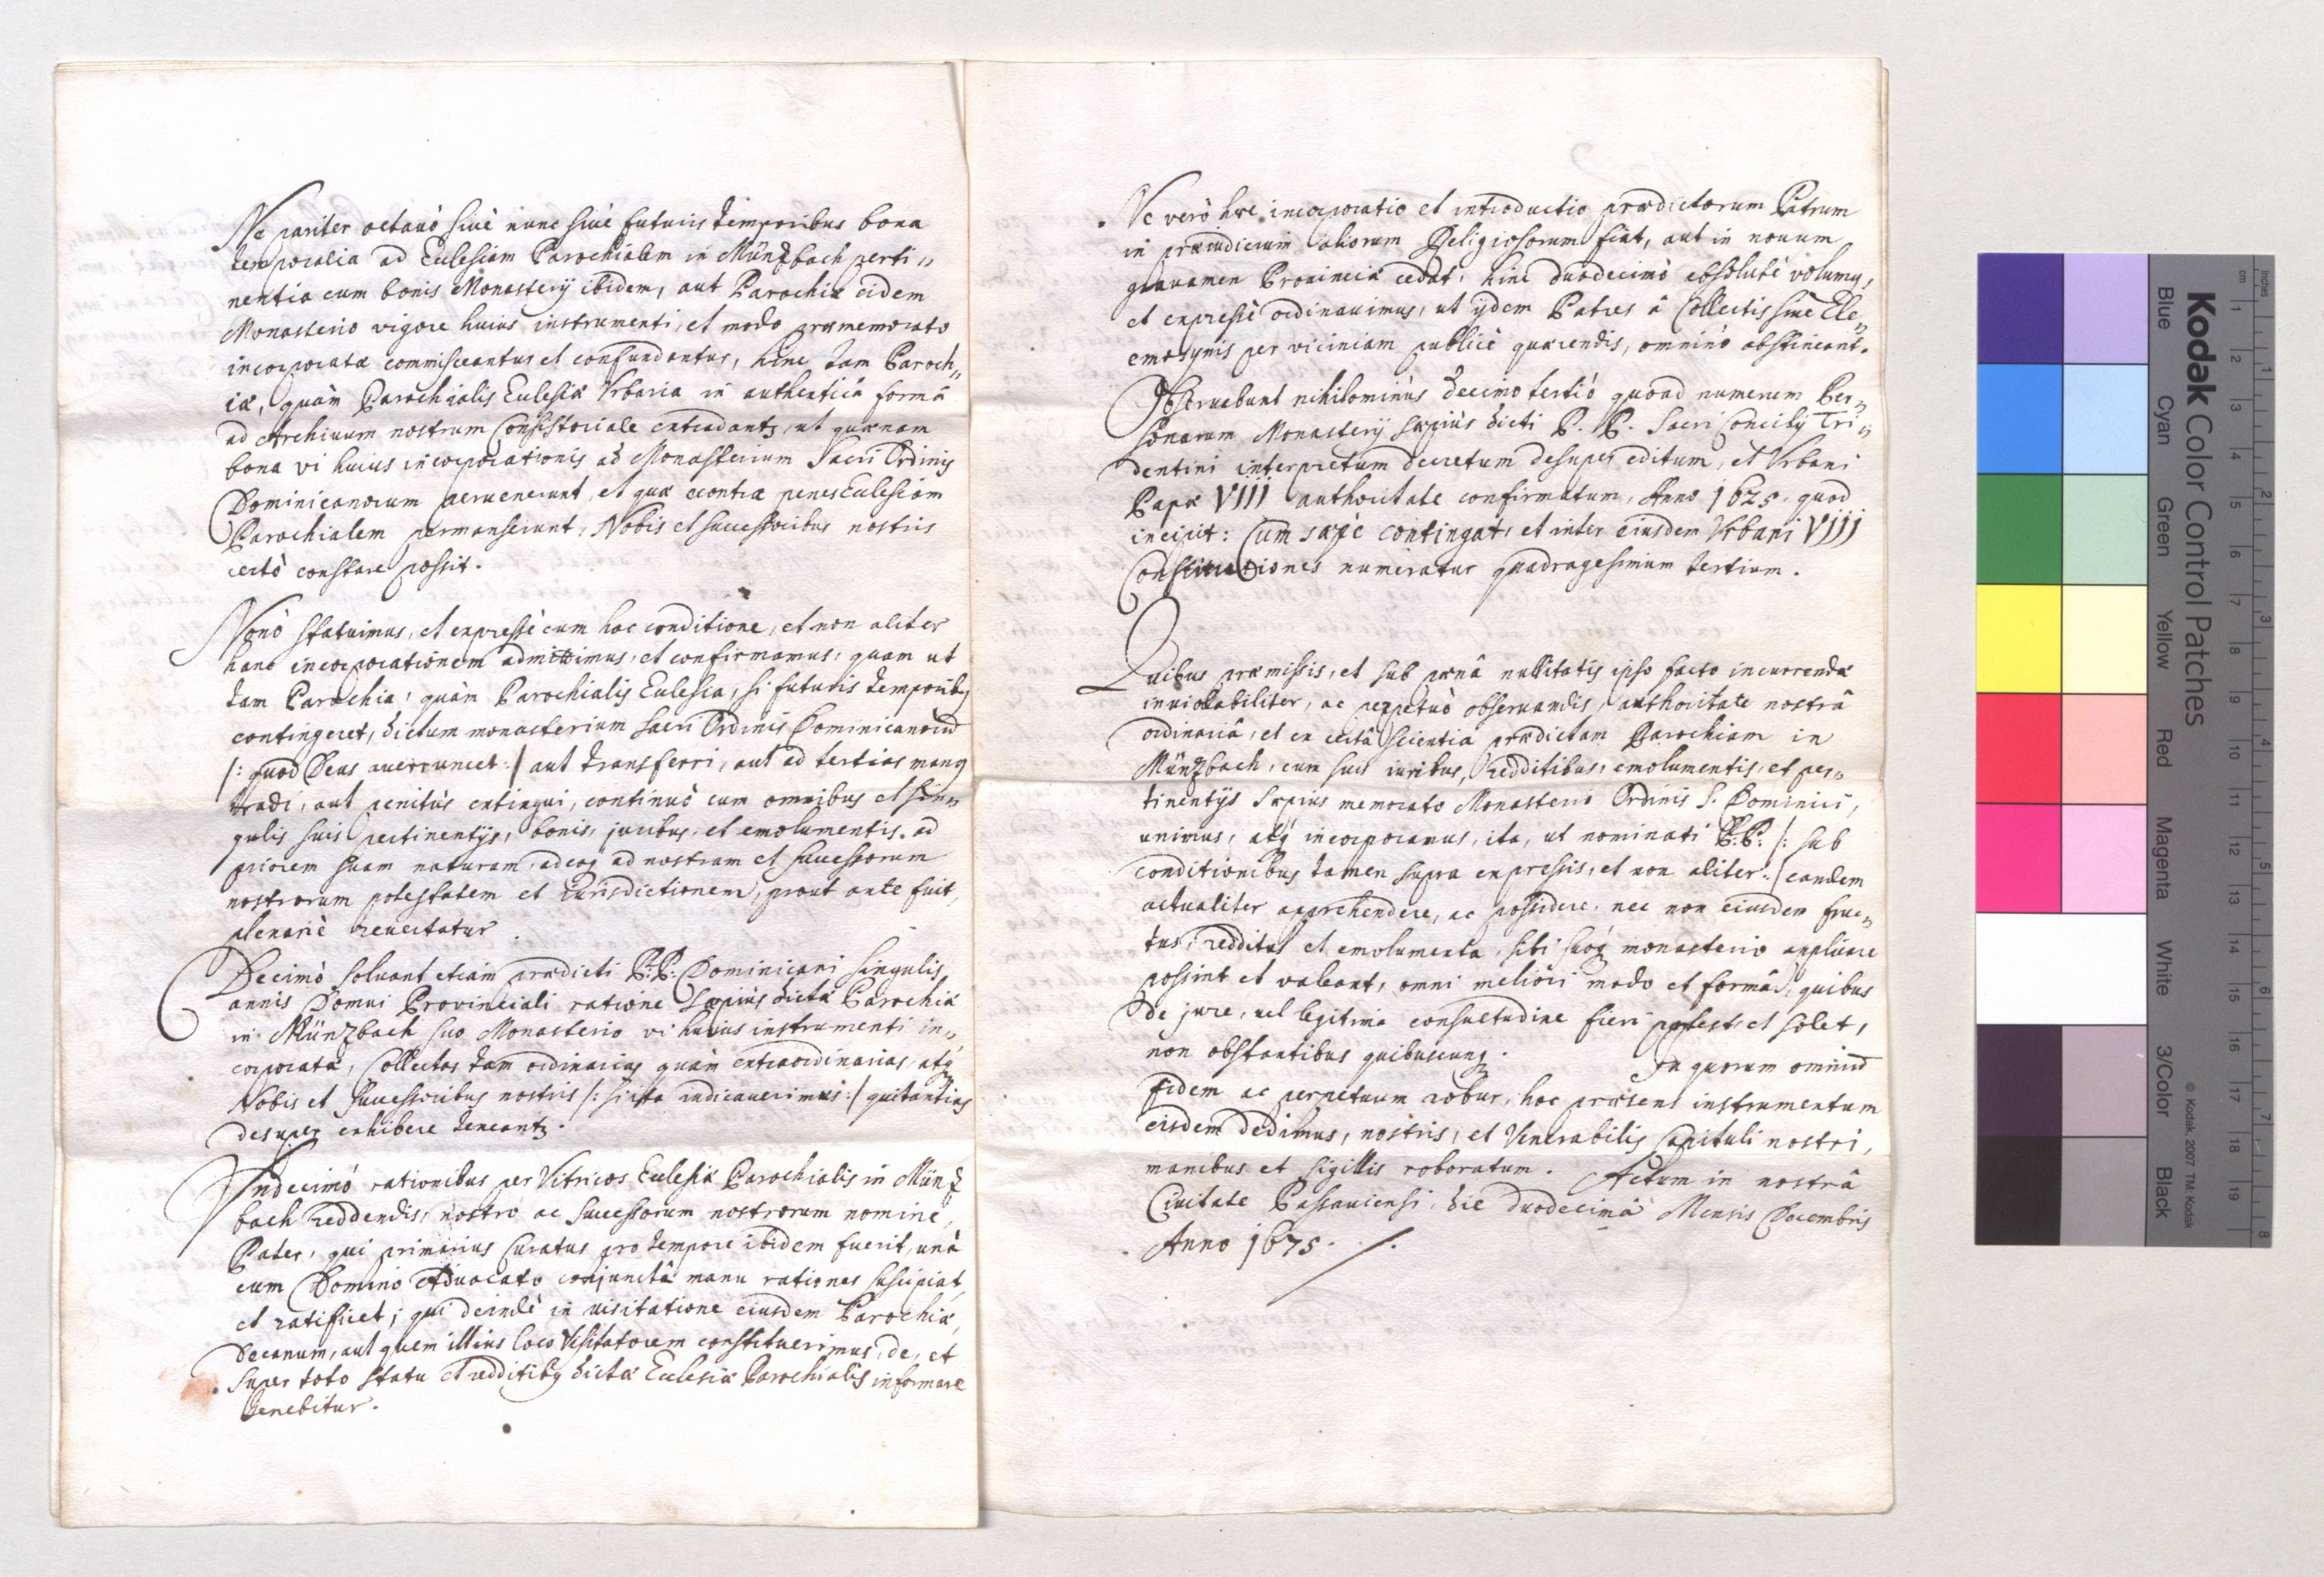 Ne pariter octauò siuè nunc siuè futuris temporibus bona
temporalia ad Ecclesiam Parochialem in Münzbach perti„
nentia cum bonis Monasterÿ ibidem, aut Parochiæ eidem
Monasterio vigore huius instrumenti, et modo præmemorato
incorporatæ commisceantur et confundantur, hinc tam Paroch„
iæ, quàm Parochialis Ecclesiæ Vrbaria in authenticâ formâ
ad Archiuum nostrum Consistoriale extradantz, ut quænam
bona vi huius incorporationis ad Monasterium Sacri Ordinis
Dominicanorum peruenerunt, et quæ econtra penes Ecclesiam
Parochialem permanserunt, Nobis et successoribus nostris
certò constare possit.
Nonò statuimus, et expressè cum hac conditione, et non aliter
hanc incorporationem admittimus, et confirmamus, quam ut
tam Parochia, quàm Parochialis Ecclesia, si futuris temporibꝫ
contingeret, dictum monasterium sacri Ordinis Dominicanorū
/: quod Deus auerruncet :/ aut transferri, aut ad tertias manꝫ
tradi, aut penitùs extingui, continuò cum omnibus et sin„
gulis suis pertinentÿs, bonis, juribus, et emolumentis, ad
priorem suam naturam, adeoq̃ ad nostram et successorum
nostrorum potestatem et Jurisdictionem, prout ante fuit,
plenariè reuertatur.
Decimò soluant etiam prædicti P:P: Dominicani singulis
annis Domui Provinciali ratione sæpiùs dictæ Parochiæ
in Münzbach suo Monasterio vi huius instrumenti in„
corporatæ, Collectas tam ordinarias quàm extraordinarias, atq̃
Nobis et successoribus nostris /: si ita indicauerimus :/ quitantias
desuper exhibere teneantꝫ.
Vndecimò rationibus per Vitricos Ecclesiæ Parochialis in Münz
bach reddendis, nostro ac successorum nostrorum nomine,
Pater, qui primarius Curatus pro tempore ibidem fuerit, unà
cum Domino Aduocato conjunctâ manu rationes suscipiat,
et ratificet; qui deindè in visitatione eiusdem Parochiæ,
Decanum, aut quem illius loco Visitatorem constituerimus, de, et
super toto statu et redditibꝫ dictæ Ecclesiæ Parochialis informare
tenebitur.
Ne verò hæc incorporatio et introductio prædictorum Patrum
in præiudicium aliorum Religiosorum fiat, aut in nouum
grauamen Prouinciæ cedat, hinc duodecimò absolutè volumꝫ,
et expressè ordinauimus, ut ÿdem Patres à Collectis siuè Ele„
emosynis per viciniam publicè quærendis, omninò abstineant.
Obseruabunt nihilominùs decimo tertiò quoad numerum Per„
sonarum Monasterÿ sæpiùs dicti P. P. Sacri Concilÿ Tri„
dentini interpretum decretum desuper editum, et Vrbani
Papæ VIII authoritate confirmatum, Anno 1625. quod
incipit: Cum sæpè contingat, et inter eiusdem Vrbani VIII
Constitutiones numeratur quadragesimum tertium.
Quibus præmissis, et sub pœnâ nullitatis ipso facto incurrendæ
inuiolabiliter, ac perpetuò obseruandis, authoritate nostrâ
ordinariâ, et ex certâ scientiâ prædictam Parochiam in
Münzbach, cum suis iuribus, redditibus, emolumentis, et per„
tinentÿs sæpius memorato Monasterio Ordinis S. Dominici,
unimus, atq̃ incorporamus, ita, ut nominati P:P: /: sub
conditionibus tamen supra expressis, et non aliter :/ eandem
actualiter apprehendere, ac possidere, nec non eiusdem fruc„
tus, redditus et emolumenta, sibi suoq̃ monasterio applicare
possint et valeant, omni meliori modo et formâ, quibus
de jure, uel legitima consuetudine fieri potest, et solet,
non obstantibus quibuscunqꝫ. In quorum omniū
fidem ac perpetuum robur, hoc præsens instrumentum
eisdem dedimus, nostris, et Venerabilis Capituli nostri,
manibus et sigillis roboratum. Actum in nostrâ
Ciuitate Passauiensi, die duodecimâ Mensis Decembris
Anno 1675. /.
Kodak Color Control Patches
Blue Cyan Green Yellow Red Magenta White 3/Color Black
© Kodak, 2007 TM: Kodak
cm 1 2 3 4 5 6 7 8 9 10 11 12 13 14 15 16 17 18 19
inches 1 2 3 4 5 6 7 8